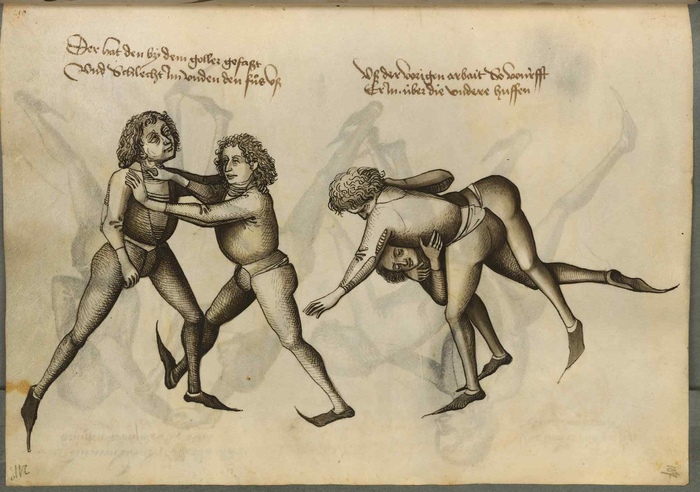 Der hat den by dem goller gefasst
Vnd Schlecht Im vnden den fůs vs
Vs der vorigen arbait So würfft
Er In über die vndere huffen